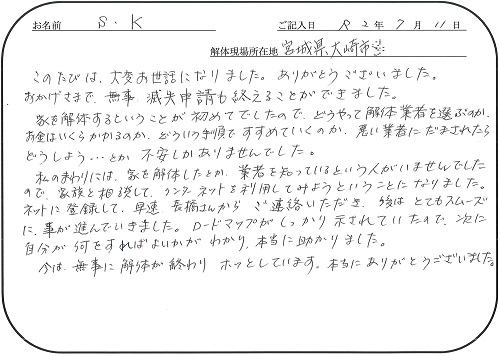 お名前 S.K ご記入日 R2年7月11日
解体現場所在地 宮城県大崎市
このたびは、大変お世話になりました。ありがとうございました。
おかげさまで、無事 滅失申請も終えることができました。
家を解体するということが初めてでしたので、どうやって解体業者を選ぶのか、
お金はいくらかかるのか、どういう手順ですすめていくのか、悪い業者にだまされたら
どうしよう…とか 不安しかありませんでした。
私のまわりには、家を解体したとか、業者を知っているという人がいませんでした
ので、家族と相談して、インターネットを利用してみようということになりました。
ネットに登録して、早速 長橋さんから ご連絡いただき、後はとてもスムーズ
に、事が進んでいきました。ロードマップがしっかり示されていたので、次に
自分が何をすればよいかが わかり、本当に助かりました。
今は、無事に解体が終わり ホッとしています。本当にありがとうございました。